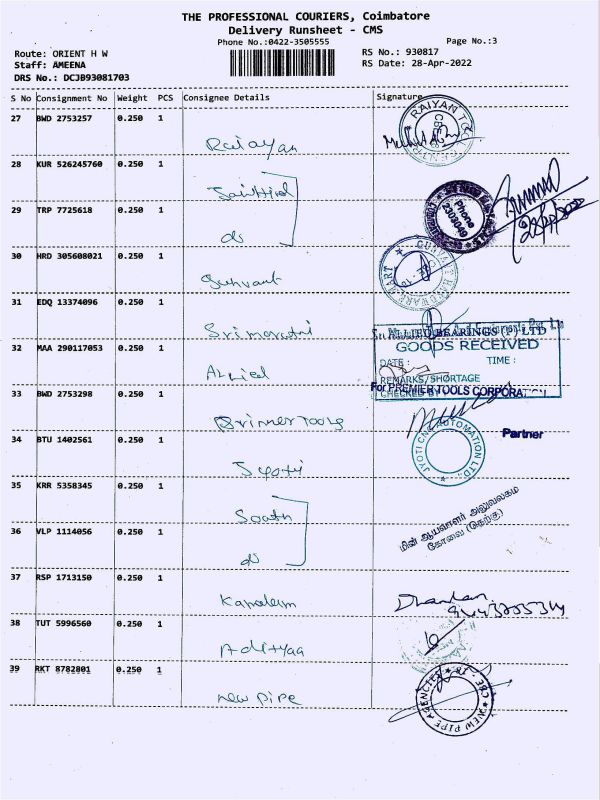 THE PROFESSIONAL COURIERS, Coimbatore
Delivery Runsheet - CMS
Phone No.:0422-3505555
Page No.:3
Route: ORIENT H W
RS No.: 930817
Staff: AMEENA
RS Date: 28-Apr-2022
DRS No.: DCJB93081703
S No Consignment No Weight PCS Consignee Details Signature
27 BWD 2753257 0.250 1
RAIYAN
28 KUR 526245760 0.250 1
Phone
2303049
29 TRP 7725618 0.250 1
do
30 HRD 305608021 0.250 1
Gunvant
31 EDQ 13374096 0.250 1
ALLIED BEARINGS (P) LTD
GOODS RECEIVED
32 MAA 290117053 0.250 1
DATE: TIME :
Allied
REMARKS/SHORTAGE
CHECKED BY
33 BWD 2753298 0.250 1
For PREMIER TOOLS CORPORATION
Partner
34 BTU 1402561 0.250 1
JYOTI CNC AUTOMATION LTD.
Jyoti
35 KRR 5358345 0.250 1
South
மின் ஆய்வாளர் அலுவலகம்
கோவை (தெற்கு)
36 VLP 1114056 0.250 1
do
37 RSP 1713150 0.250 1
38 TUT 5996560 0.250 1
Adityaa
39 RKT 8782801 0.250 1
new pipe
NEW PIPE AGENCIES